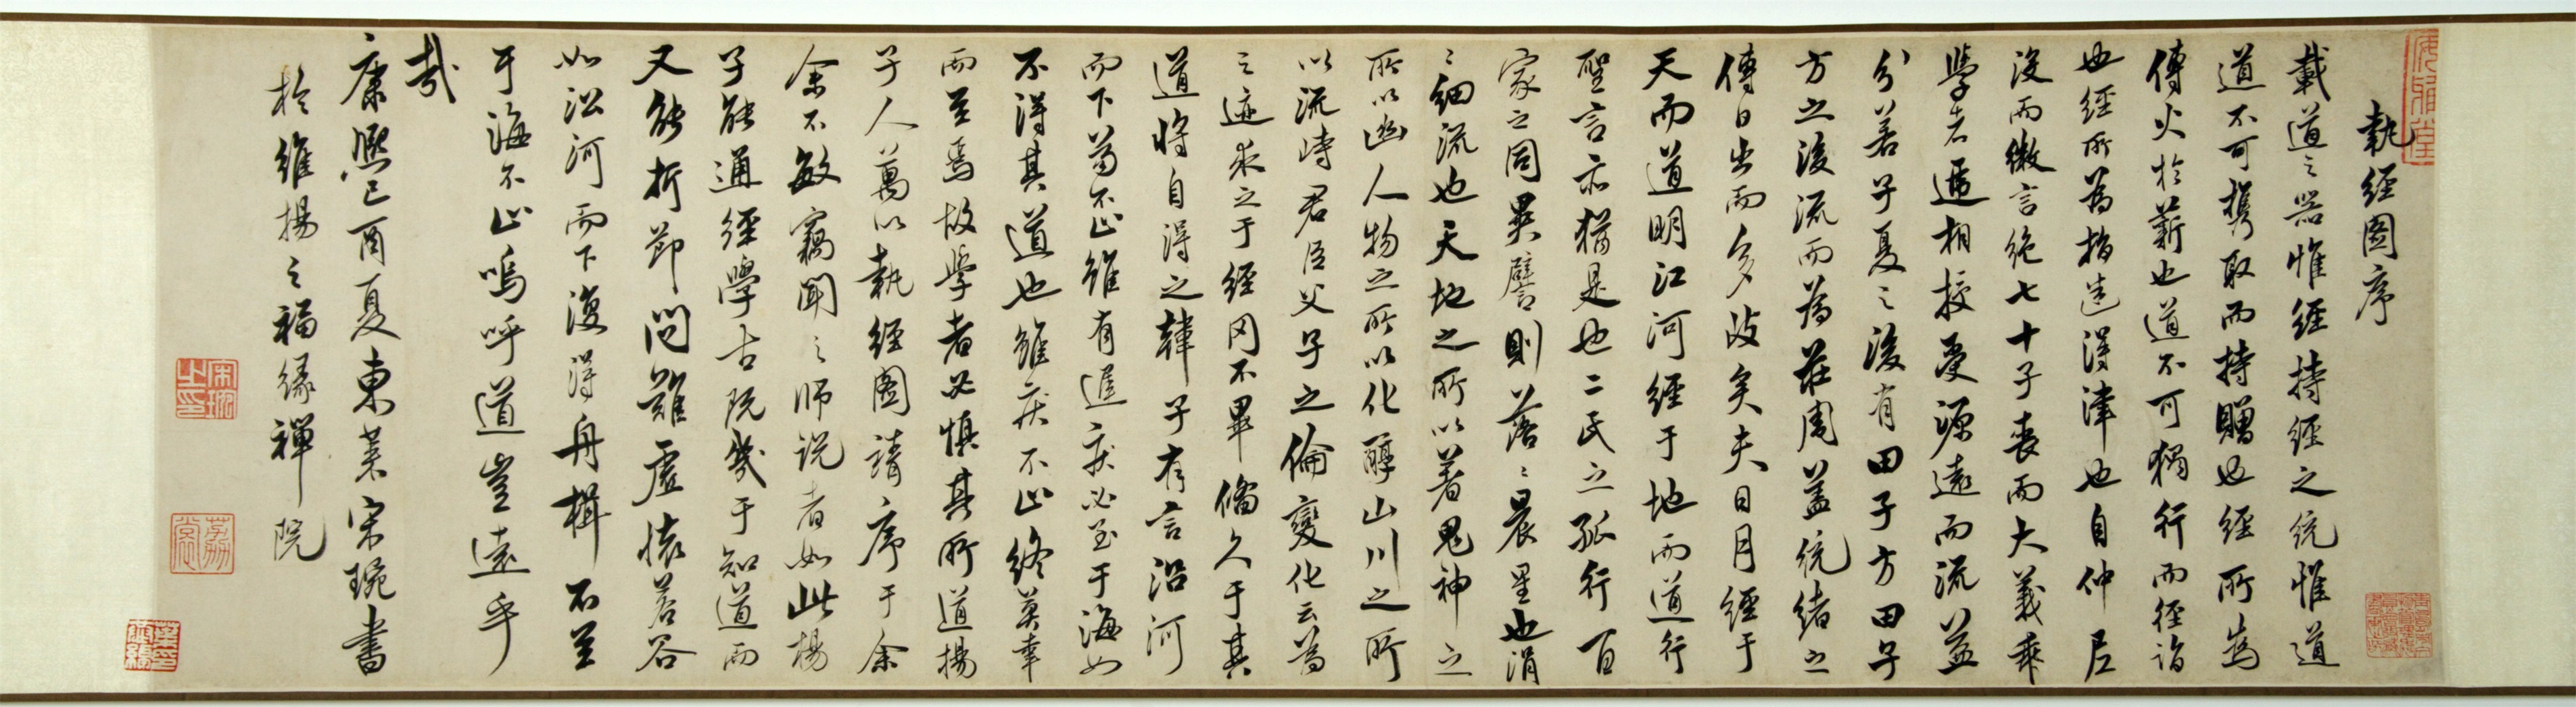 執經圖序
載道之器惟經持經之統惟道
道不可攜取而持贈也經所為
傳火於薪也道不可獨行而徑詣
也經所為指迷得津也自仲尼
沒而微言絕七十子喪而大義乖
學者遞相授受源遠而流益
分若子夏之後有田子方田子
方之後流而為莊周蓋統緒之
傳日出而多歧矣夫日月經于
天而道明江河經于地而道行
聖言亦猶是也二氏之孤行百
家之同異譬則落落晨星也涓
涓細流也天地之所以著鬼神之
所以幽人物之所以化醇山川之所
以流峙君臣父子之倫變化云為
之迹求之于經罔不畢備久于其
道將自得之韓子有言沿河
而下苟不止雖有遲疾必至于海如
不得其道也雖疾不止終莫幸
而至焉故學者必慎其所道揚
子人萬以執經圖請序于余
余不敏竊聞之師說者如此揚
子能通經學古既幾于知道而
又能折節問難虛懷若谷
如沿河而下復得舟楫不至
于海不止嗚呼道豈遠乎
哉
康熙己酉夏東萊宋琬書
於維揚之福緣禪院
宋琬之印
荔裳